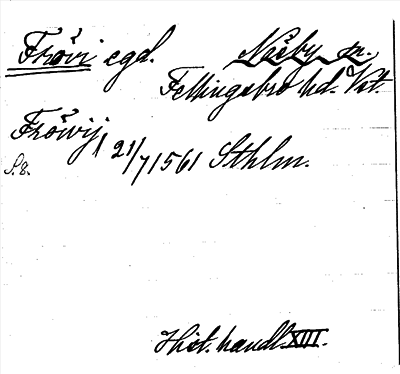 Frövi egd. Näsby sn.
Fellingsbro hd. Vstm.
Frövij 21/7 1561 Sthlm.
S. 8.
Hist. handl. XIII.